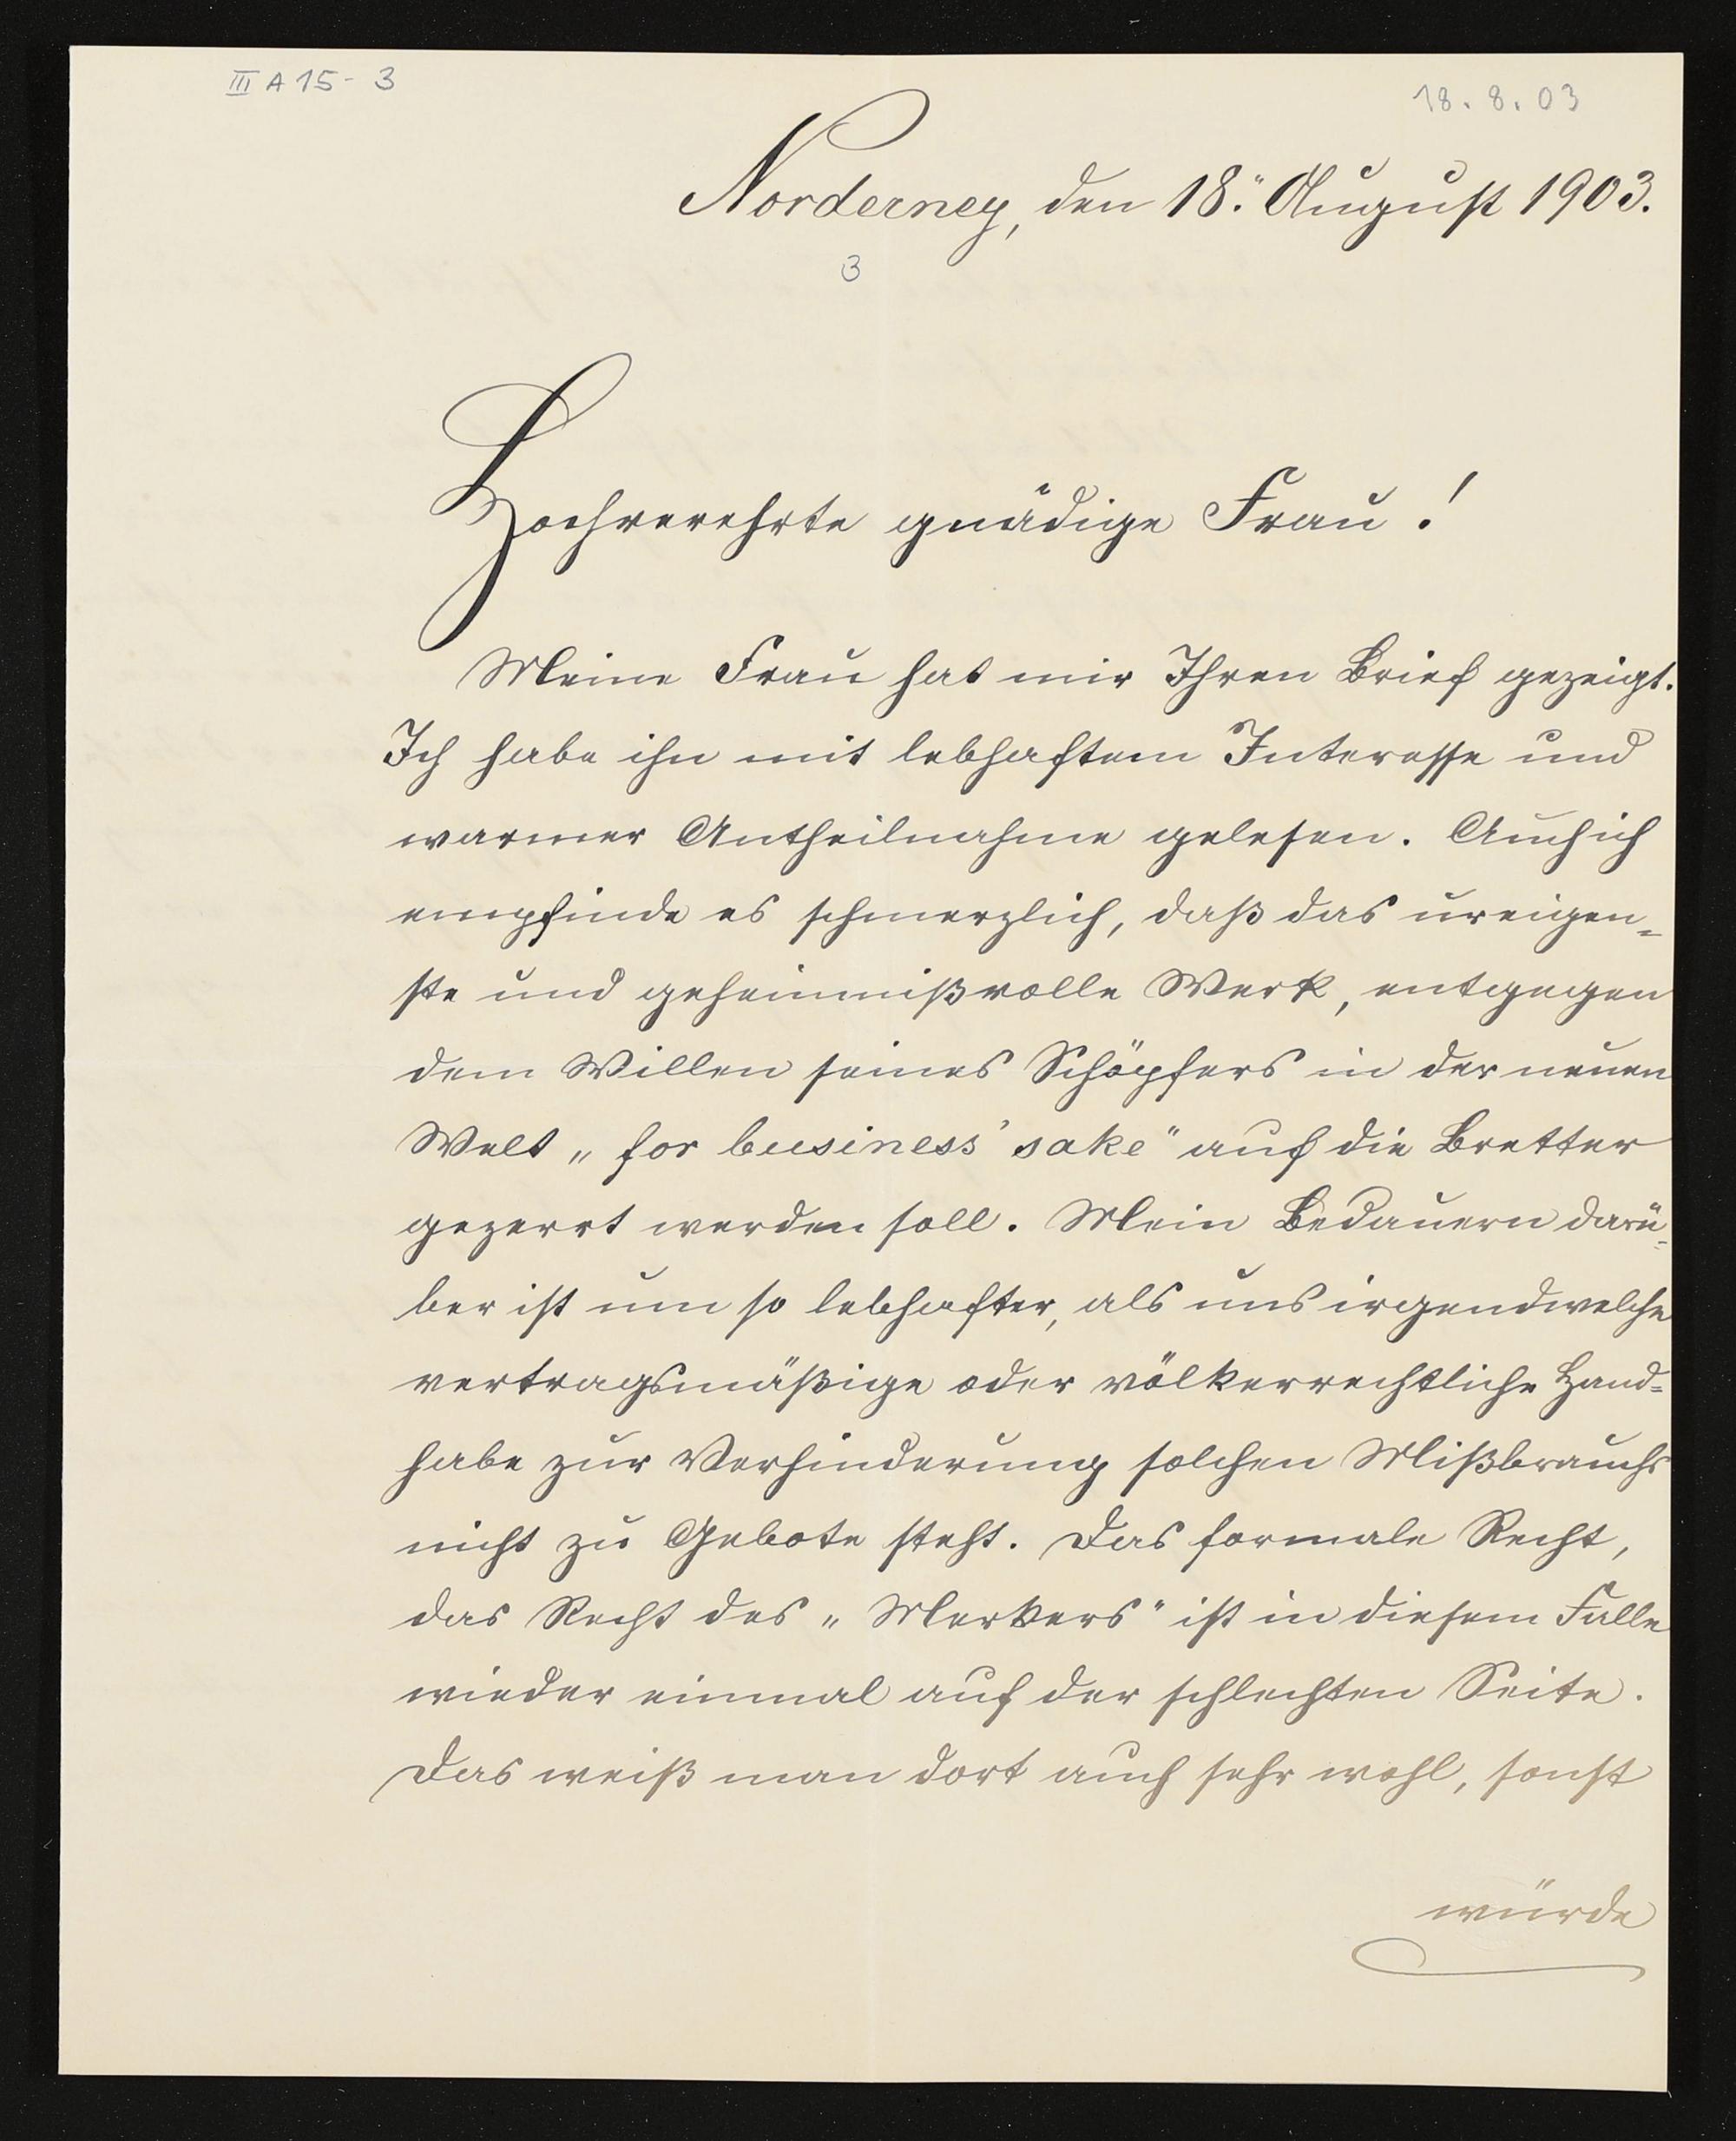 III A 15 - 3
18. 8. 03
Norderney, den 18. August 1903.
3
Hochverehrte gnädige Frau!
Meine Frau hat mir Ihren Brief gezeigt.
Ich habe ihn mit lebhaftem Interesse und
warmer Antheilnahme gelesen. Auch ich
empfinde es schmerzlich, daß das ureigen-
ste und geheimnißvolle Werk, entgegen
dem Willen seines Schöpfers in der neuen
Welt „for business' sake" auf die Bretter
gezerrt werden soll. Mein Bedauern darü-
ber ist um so lebhafter, als uns irgendwelche
vertragsmäßige oder völkerrechtliche Hand-
habe zur Verhinderung solchen Mißbrauchs
nicht zu Gebote steht. Das formale Recht,
das Recht des „Merkers" ist in diesem Falle
wieder einmal auf der schlechten Seite.
Das weiß man dort auch sehr wohl, sonst
würde